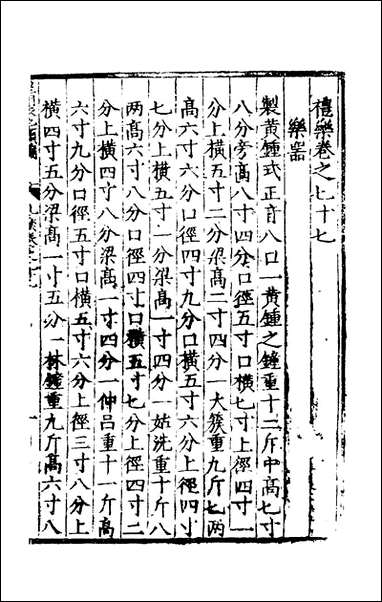 禮樂卷之七十七
樂器
製黃鍾式正音八口一黃鍾之鐘重十二斤中高七寸
八分旁高八寸四分口徑五寸口橫七寸上徑四寸一
分上橫五寸二分梁高二寸四分一大簇重九斤七兩
高六寸六分口徑四寸九分口橫五寸六分上徑四寸
七分上橫五寸一分梁高一寸四分一姑洗重十斤八
兩高六寸八分口徑四寸口橫五寸七分上徑四寸二
分上橫四寸八分梁高一寸四分一仲呂重十一斤高
六寸九分口徑五寸口橫五寸六分上徑三寸八分上
橫四寸五分梁高一寸五分一林鐘重九斤高六寸八